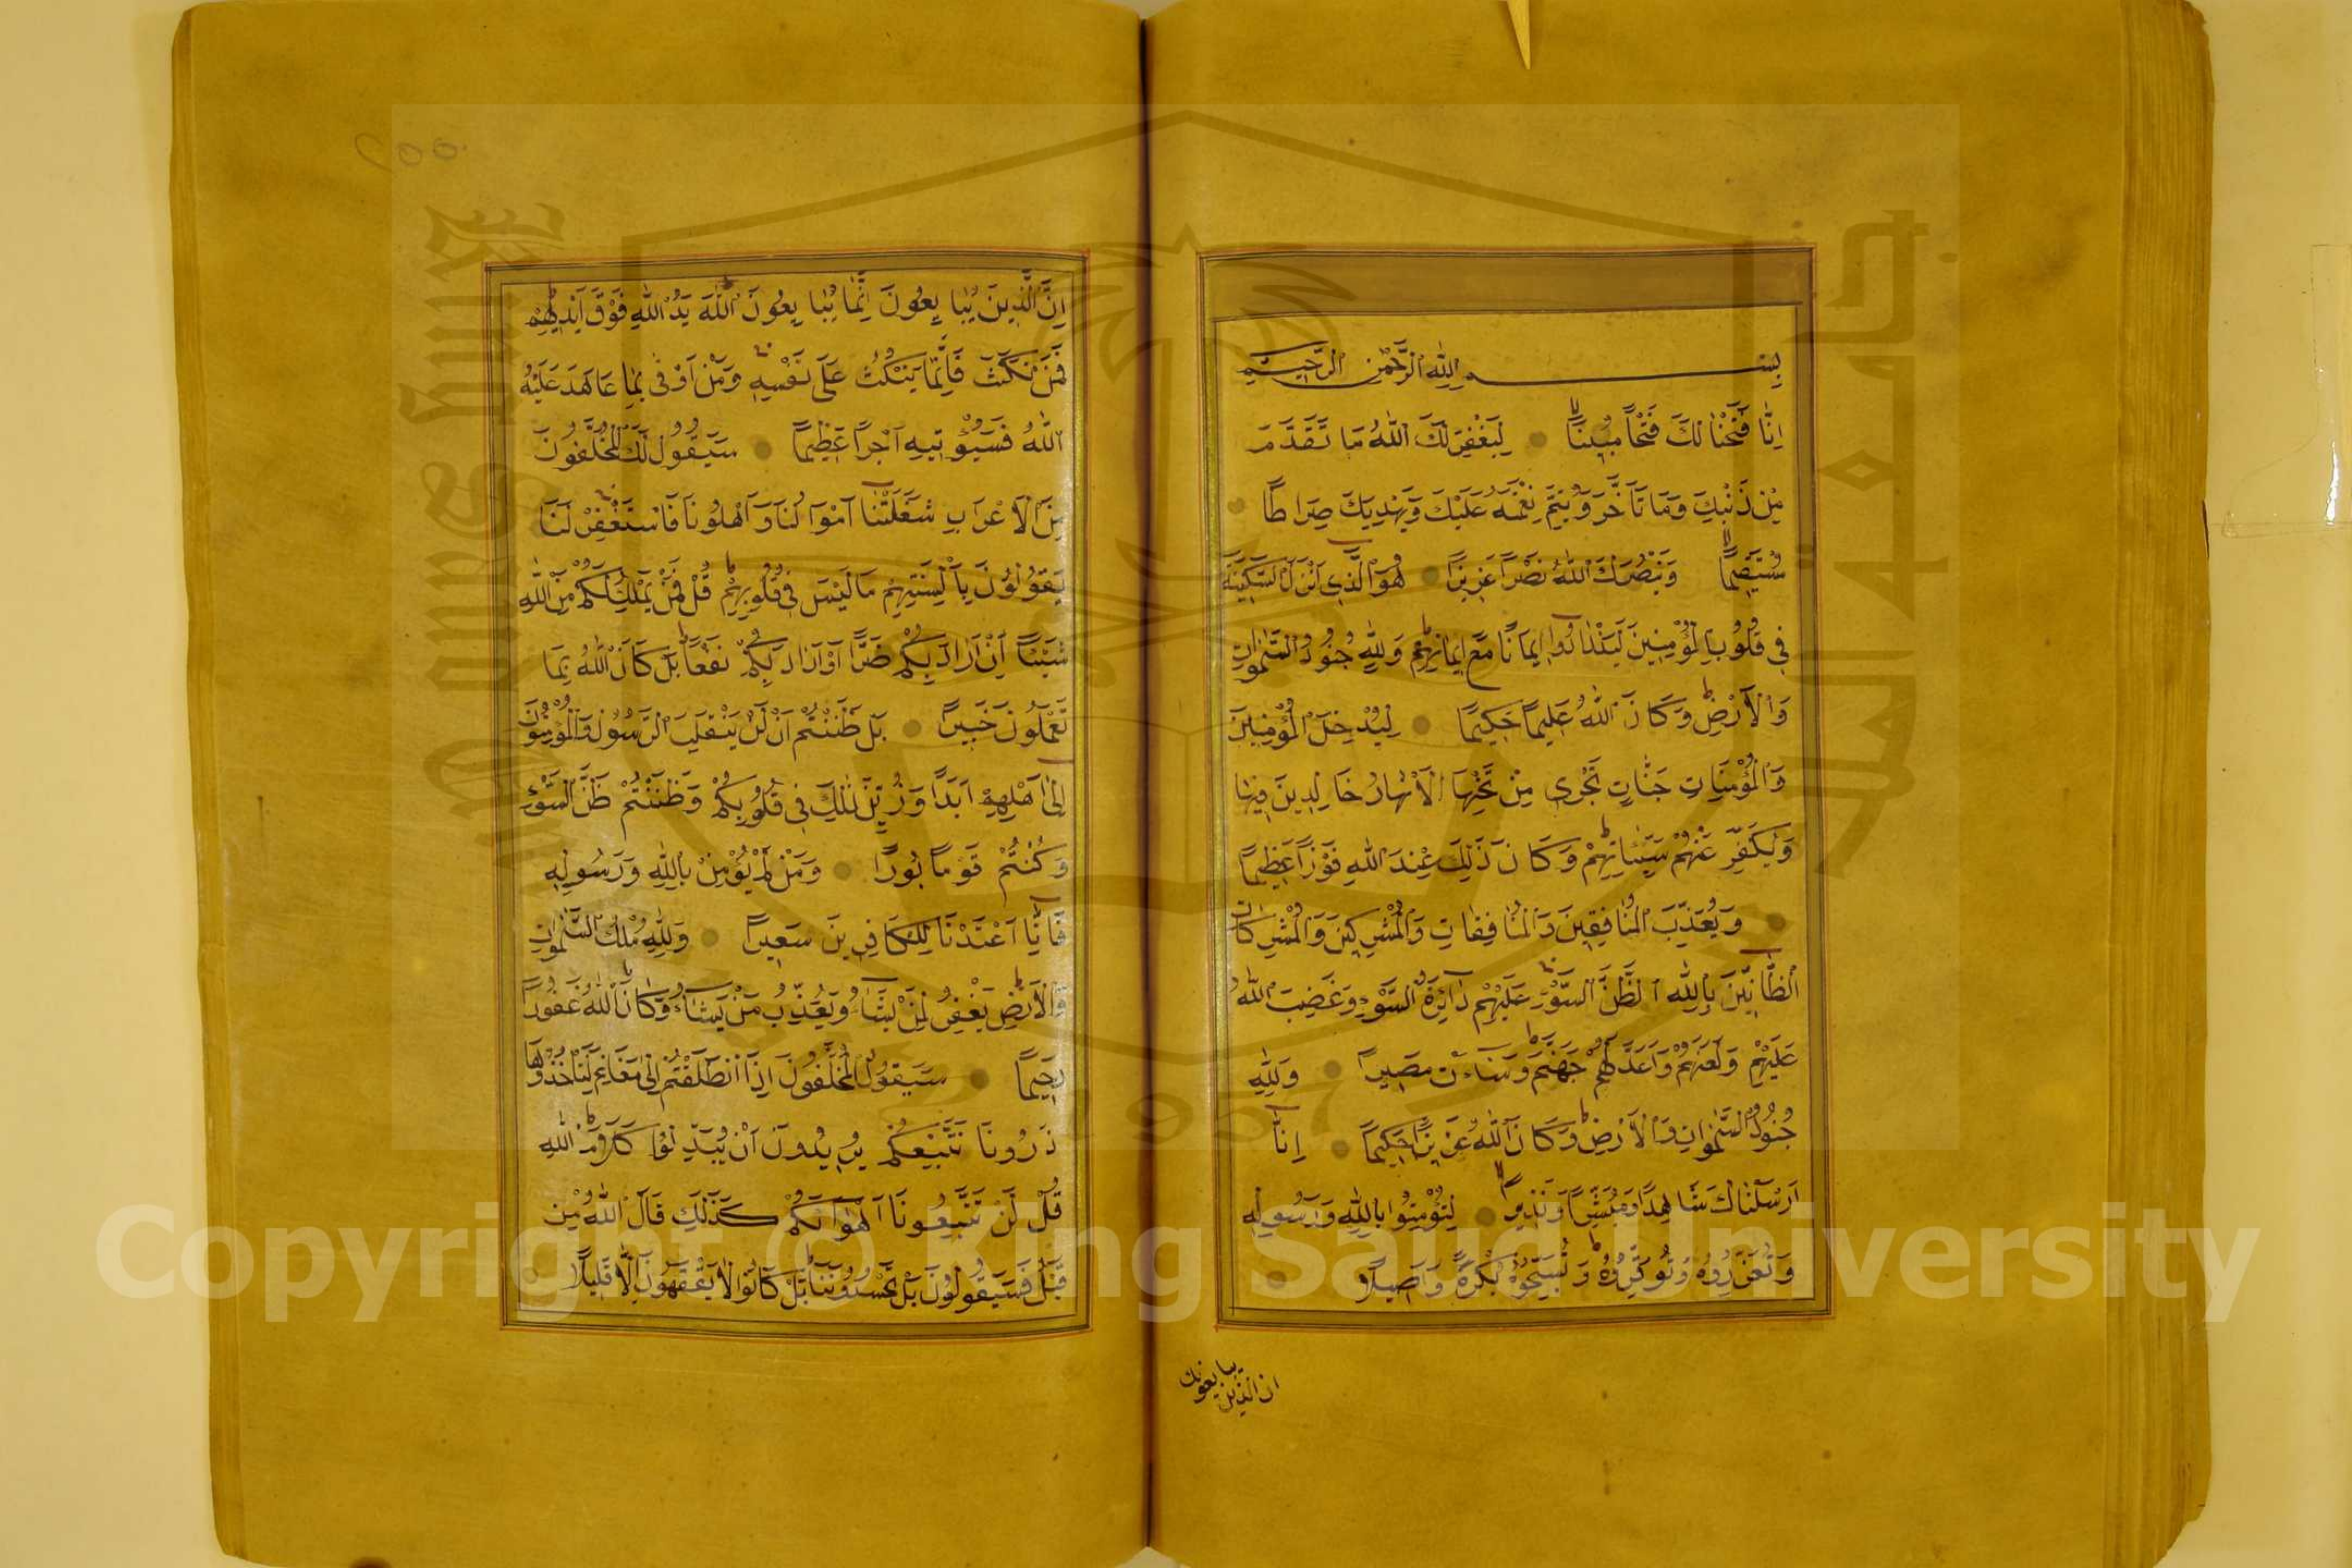 بِسْمِ اللّٰهِ الرَّحْمٰنِ الرَّحِيمِ
اِنَّا فَتَحْنَا لَكَ فَتْحًا مُبِينًا لِيَغْفِرَ لَكَ اللّٰهُ مَا تَقَدَّمَ
مِنْ ذَنْبِكَ وَمَا تَاَخَّرَ وَيُتِمَّ نِعْمَتَهُ عَلَيْكَ وَيَهْدِيَكَ صِرَاطًا
مُسْتَقِيمًا وَيَنْصُرَكَ اللّٰهُ نَصْرًا عَزِيزًا هُوَ الَّذِى اَنْزَلَ السَّكِينَةَ
فِى قُلُوبِ الْمُؤْمِنِينَ لِيَزْدَادُوا اِيمَانًا مَعَ اِيمَانِهِمْ وَلِلّٰهِ جُنُودُ السَّمٰوَاتِ
وَالْاَرْضِ وَكَانَ اللّٰهُ عَلِيمًا حَكِيمًا لِيُدْخِلَ الْمُؤْمِنِينَ
وَالْمُؤْمِنَاتِ جَنَّاتٍ تَجْرِى مِنْ تَحْتِهَا الْاَنْهَارُ خَالِدِينَ فِيهَا
وَيُكَفِّرَ عَنْهُمْ سَيِّئَاتِهِمْ وَكَانَ ذٰلِكَ عِنْدَ اللّٰهِ فَوْزًا عَظِيمًا
وَيُعَذِّبَ الْمُنَافِقِينَ وَالْمُنَافِقَاتِ وَالْمُشْرِكِينَ وَالْمُشْرِكَاتِ
الظَّانِّينَ بِاللّٰهِ ظَنَّ السَّوْءِ عَلَيْهِمْ دَائِرَةُ السَّوْءِ وَغَضِبَ اللّٰهُ
عَلَيْهِمْ وَلَعَنَهُمْ وَاَعَدَّ لَهُمْ جَهَنَّمَ وَسَاءَتْ مَصِيرًا وَلِلّٰهِ
جُنُودُ السَّمٰوَاتِ وَالْاَرْضِ وَكَانَ اللّٰهُ عَزِيزًا حَكِيمًا اِنَّا
اَرْسَلْنَاكَ شَاهِدًا وَمُبَشِّرًا وَنَذِيرًا لِتُؤْمِنُوا بِاللّٰهِ وَرَسُولِهِ
وَتُعَزِّرُوهُ وَتُوَقِّرُوهُ وَتُسَبِّحُوهُ بُكْرَةً وَاَصِيلًا
ان الذين يبايعونك
٢٥٥
اِنَّ الَّذِينَ يُبَايِعُونَ اِنَّمَا يُبَايِعُونَ اللّٰهَ يَدُ اللّٰهِ فَوْقَ اَيْدِيهِمْ
فَمَنْ نَكَثَ فَاِنَّمَا يَنْكُثُ عَلَى نَفْسِهِ وَمَنْ اَوْفَى بِمَا عَاهَدَ عَلَيْهُ
اللّٰهُ فَسَيُؤْتِيهِ اَجْرًا عَظِيمًا سَيَقُولُ لَكَ الْمُخَلَّفُونَ
مِنَ الْاَعْرَابِ شَغَلَتْنَا اَمْوَالُنَا وَاَهْلُونَا فَاسْتَغْفِرْ لَنَا
يَقُولُونَ بِاَلْسِنَتِهِمْ مَا لَيْسَ فِى قُلُوبِهِمْ قُلْ فَمَنْ يَمْلِكُ لَكُمْ مِنَ اللّٰهِ
شَيْئًا اِنْ اَرَادَ بِكُمْ ضَرًّا اَوْ اَرَادَ بِكُمْ نَفْعًا بَلْ كَانَ اللّٰهُ بِمَا
تَعْمَلُونَ خَبِيرًا بَلْ ظَنَنْتُمْ اَنْ لَنْ يَنْقَلِبَ الرَّسُولُ وَالْمُؤْمِنُونَ
اِلٰى اَهْلِيهِمْ اَبَدًا وَزُيِّنَ ذٰلِكَ فِى قُلُوبِكُمْ وَظَنَنْتُمْ ظَنَّ السَّوْءِ
وَكُنْتُمْ قَوْمًا بُورًا وَمَنْ لَمْ يُؤْمِنْ بِاللّٰهِ وَرَسُولِهِ
فَاِنَّا اَعْتَدْنَا لِلْكَافِرِينَ سَعِيرًا وَلِلّٰهِ مُلْكُ السَّمٰوَاتِ
وَالْاَرْضِ يَغْفِرُ لِمَنْ يَشَاءُ وَيُعَذِّبُ مَنْ يَشَاءُ وَكَانَ اللّٰهُ غَفُورًا
رَحِيمًا سَيَقُولُ الْمُخَلَّفُونَ اِذَا انْطَلَقْتُمْ اِلٰى مَغَانِمَ لِتَاْخُذُوهَا
ذَرُونَا نَتَّبِعْكُمْ يُرِيدُونَ اَنْ يُبَدِّلُوا كَلَامَ اللّٰهِ
قُلْ لَنْ تَتَّبِعُونَا كَذٰلِكُمْ كَذٰلِكَ قَالَ اللّٰهُ مِنْ
قَبْلُ فَسَيَقُولُونَ بَلْ تَحْسُدُونَنَا بَلْ كَانُوا لَا يَفْقَهُونَ اِلَّا قَلِيلًا
Copyright © King Saud University
King Saud University
جامعة الملك سعود
1957